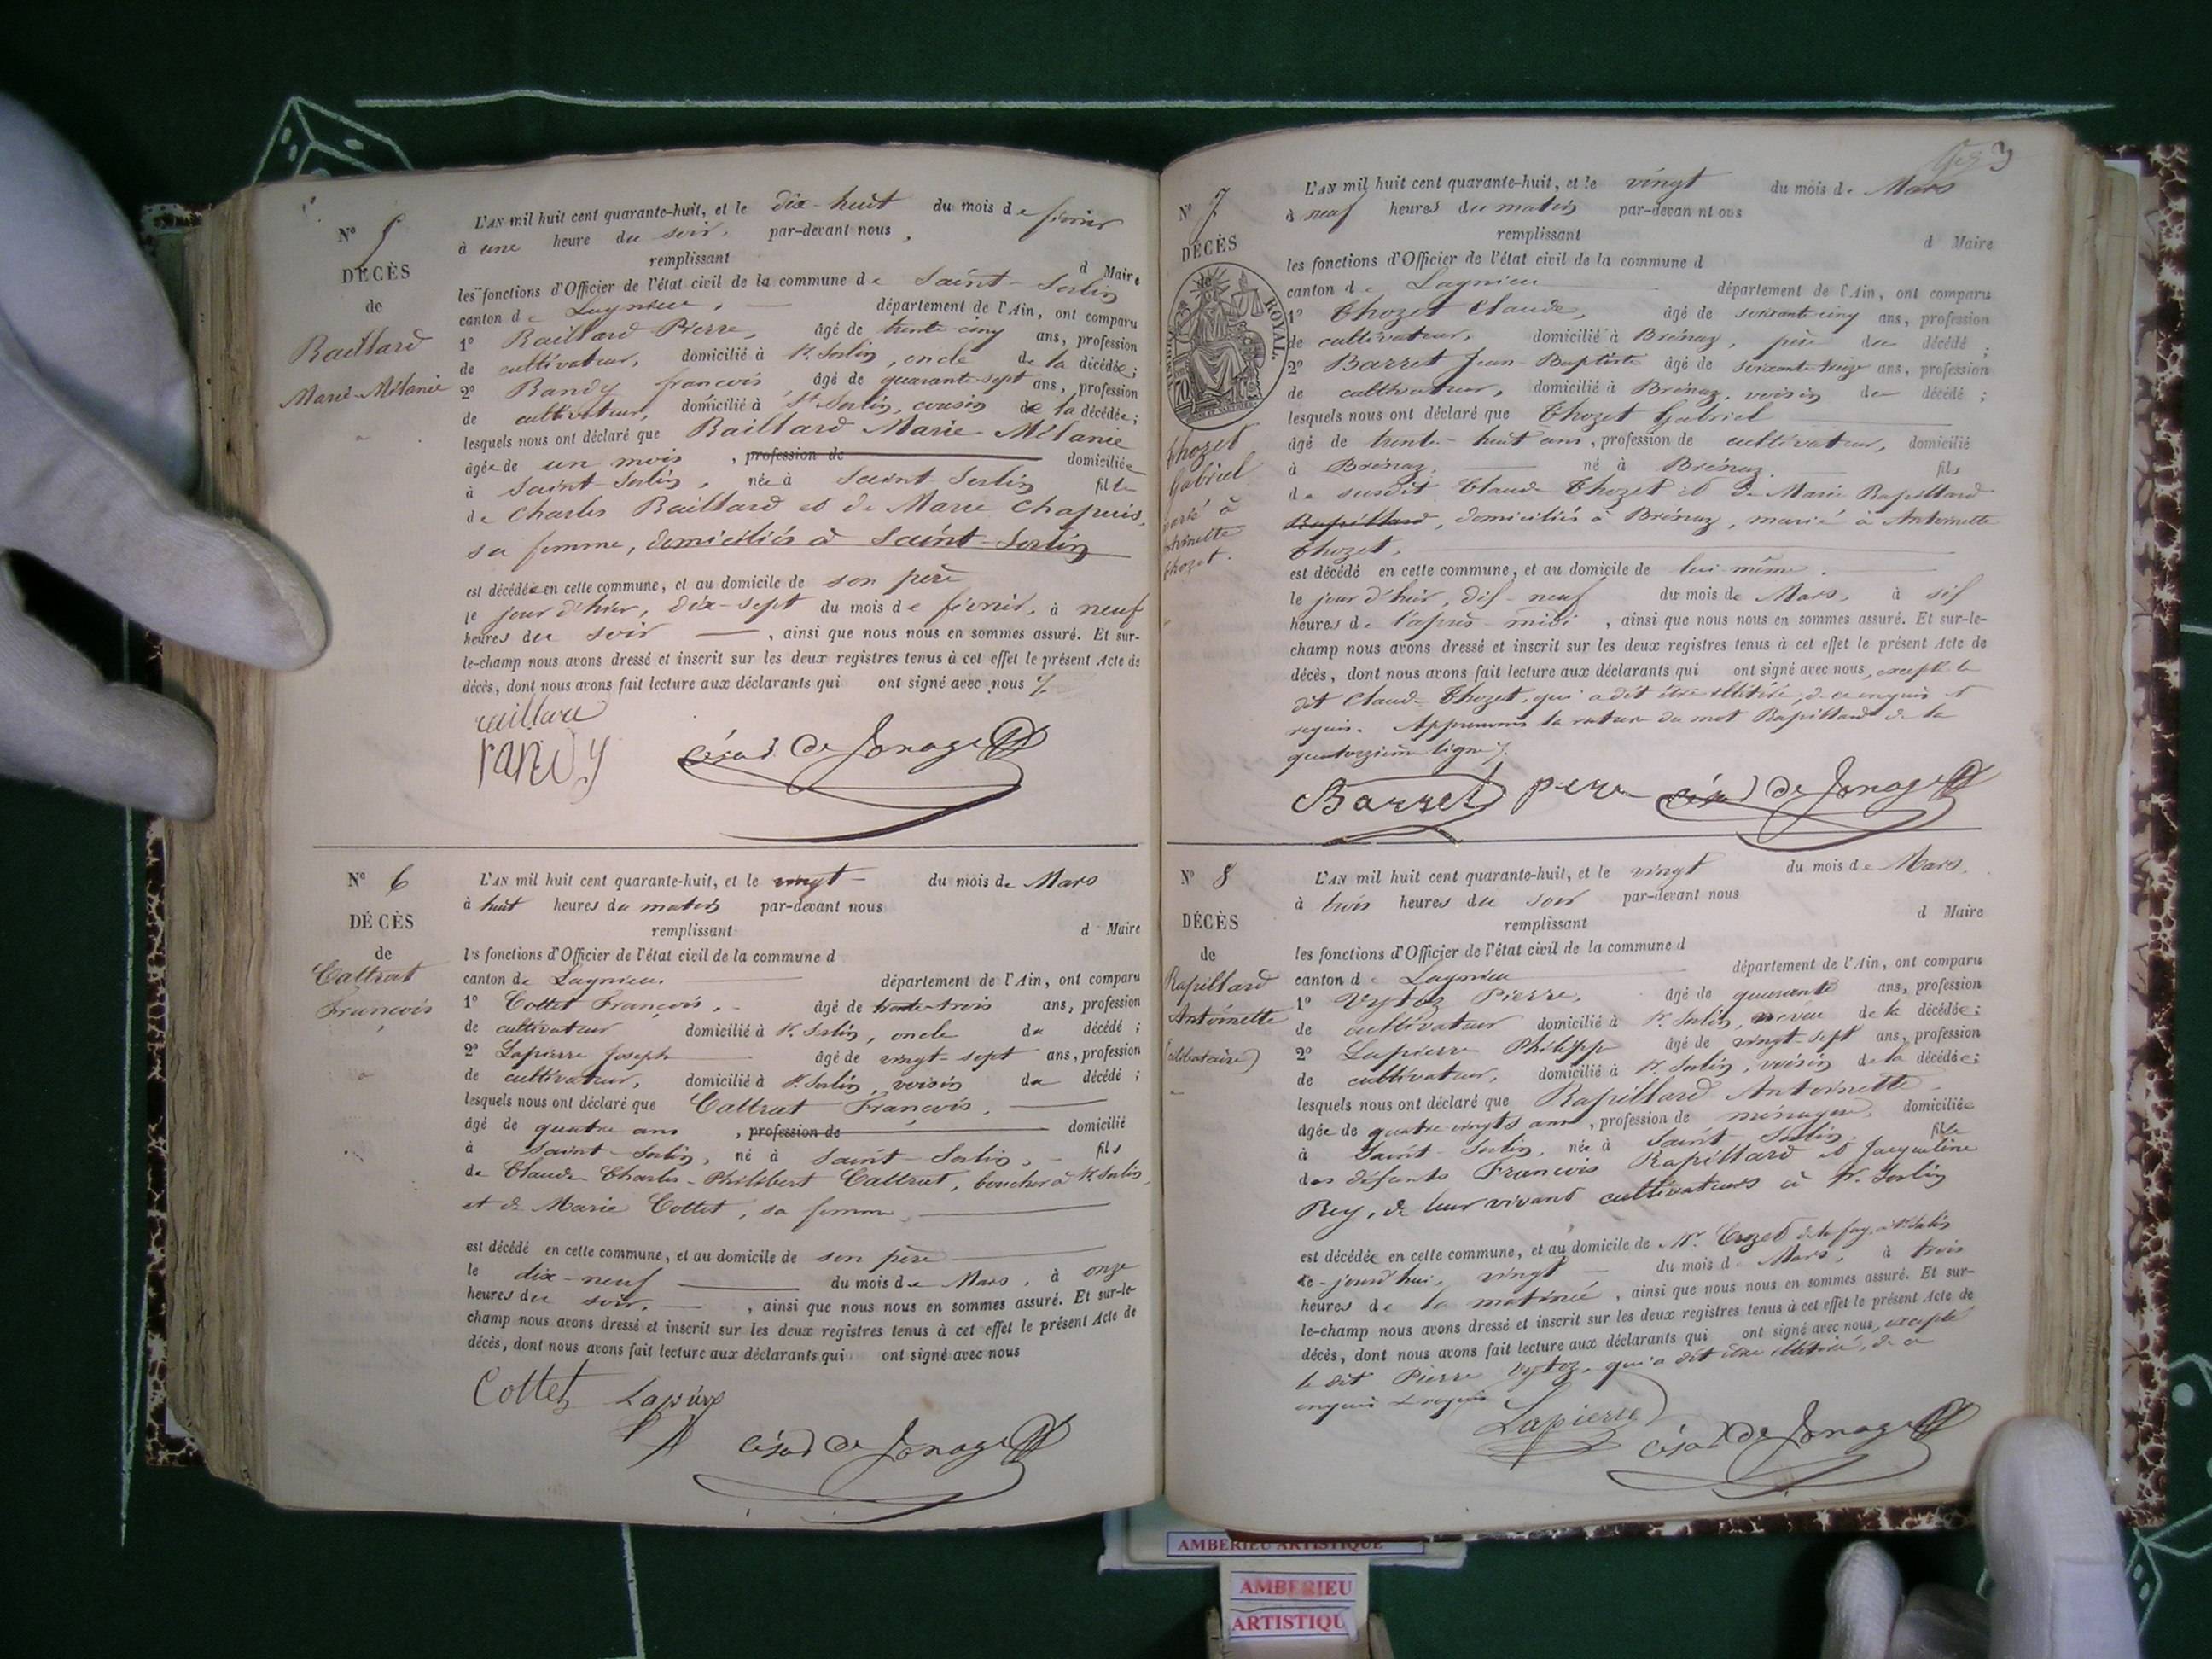 N° 5
DÉCÈS
de
Raillard
Marie-Mélanie
L'AN mil huit cent quarante-huit, et le dix-huit du mois de février
à une heure du soir, par-devant nous,
remplissant d Maire
les fonctions d'Officier de l'état civil de la commune de Saint-Sorlin
canton de Lagnieu, département de l'Ain, ont comparu
1° Raillard Pierre, âgé de trente cinq ans, profession
de cultivateur, domicilié à St Sorlin, oncle de la décédée;
2° Randy francois, âgé de quarante-sept ans, profession
de cultivateur, domicilié à St Sorlin, cousin de la décédée;
lesquels nous ont déclaré que Raillard Marie-Mélanie
âgée de un mois, profession de domiciliée
à Saint Sorlin, née à Saint Sorlin fille
de Charles Raillard et de Marie Chapuis,
sa femme, domiciliés à Saint-Sorlin
est décédée en cette commune, et au domicile de son père
le jour d'hier, dix-sept du mois de février, à neuf
heures du soir, ainsi que nous nous en sommes assuré. Et sur-
le-champ nous avons dressé et inscrit sur les deux registres tenus à cet effet le présent Acte de
décès, dont nous avons fait lecture aux déclarants qui ont signé avec nous
raillard
randy César De Jonage
N° 6
DÉCÈS
de
Cattrat
Francois
L'AN mil huit cent quarante-huit, et le vingt du mois de Mars
à huit heures du matin par-devant nous
remplissant d Maire
les fonctions d'Officier de l'état civil de la commune d
canton de Lagnieu. département de l'Ain, ont comparu
1° Cottet François, âgé de trente-trois ans, profession
de cultivateur domicilié à St. Sorlin, oncle du décédé;
2° Lapierre Joseph âgé de vingt-sept ans, profession
de cultivateur, domicilié à St. Sorlin, voisin du décédé;
lesquels nous ont déclaré que Cattrat François,
âgé de quatre ans, profession de domicilié
à Saint-Sorlin, né à Saint-Sorlin, fils
de Claude-Charles-Philibert Cattrat, boucher à St Sorlin,
et de Marie Cottet, sa femme
est décédé en cette commune, et au domicile de son père
le dix-neuf du mois de Mars, à onze
heures du soir, ainsi que nous nous en sommes assuré. Et sur-le-
champ nous avons dressé et inscrit sur les deux registres tenus à cet effet le présent Acte de
décès, dont nous avons fait lecture aux déclarants qui ont signé avec nous
Cottet Lapierre
César De Jonage
3
N° 7
DÉCÈS
de
ROYAL.
thozet
Gabriel
marié à
Antoinette
thozet.
L'AN mil huit cent quarante-huit, et le vingt du mois de Mars
à neuf heures du matin par-devan nt ous
remplissant d Maire
les fonctions d'Officier de l'état civil de la commune d
canton de Lagnieu département de l'Ain, ont comparu
1° Thozet Claude, âgé de soixante cinq ans, profession
de cultivateur, domicilié à Brénaz, père du décédé;
2° Barret Jean-Baptiste âgé de soixante-treize ans, profession
de cultivateur, domicilié à Brénaz, voisin du décédé;
lesquels nous ont déclaré que Thozet Gabriel
âgé de trente-huit ans, profession de cultivateur, domicilié
à Brénaz, né à Brénaz. fils
de susdit Claude Thozet et de Marie Rapillard
Rapillard, domiciliés à Brénaz, marié à Antoinette
Thozet,
est décédé en cette commune, et au domicile de lui même.
le jour d'hier, dix-neuf du mois de Mars, à six
heures de l'après-midi, ainsi que nous nous en sommes assuré. Et sur-le-
champ nous avons dressé et inscrit sur les deux registres tenus à cet effet le présent Acte de
décès, dont nous avons fait lecture aux déclarants qui ont signé avec nous, excepté le
dit Claude Thozet, qui a dit être illitéré, de ce enquis et
requis. Approuvons la rature du mot Rapillard de la
quatorzième ligne
Barret pere César De Jonage
N° 8
DÉCÈS
de
Rapillard
Antoinette
(célibataire)
L'AN mil huit cent quarante-huit, et le vingt du mois de Mars.
à trois heures du soir par-devant nous
remplissant d Maire
les fonctions d'Officier de l'état civil de la commune d
canton de Lagnieu département de l'Ain, ont comparu
1° Vytoz Pierre, âgé de quarante ans, profession
de cultivateur domicilié à St. Sorlin, neveu de la décédée;
2° Lapierre Philippe âgé de vingt-sept ans, profession
de cultivateur, domicilié à St. Sorlin, voisin de la décédée;
lesquels nous ont déclaré que Rapillard Antoinette
âgée de quatre vingts ans, profession de ménagère, domiciliée
à Saint-Sorlin, née à Saint Sorlin. fille
des défunts François Rapillard et Jacqueline
Rey, de leur vivant cultivateurs à St. Sorlin
est décédée en cette commune, et au domicile de Mr. Crozet à St Sorlin
ce-jourd'hui, vingt du mois de Mars, à trois
heures de la matinée, ainsi que nous nous en sommes assuré. Et sur-
le-champ nous avons dressé et inscrit sur les deux registres tenus à cet effet le présent Acte de
décès, dont nous avons fait lecture aux déclarants qui ont signé avec nous, excepté
le dit Pierre Vytoz, qui a dit être illitéré, de ce
enquis et requis
Lapierre César De Jonage
AMBERIEU ARTISTIQUE
AMBERIEU
ARTISTIQU